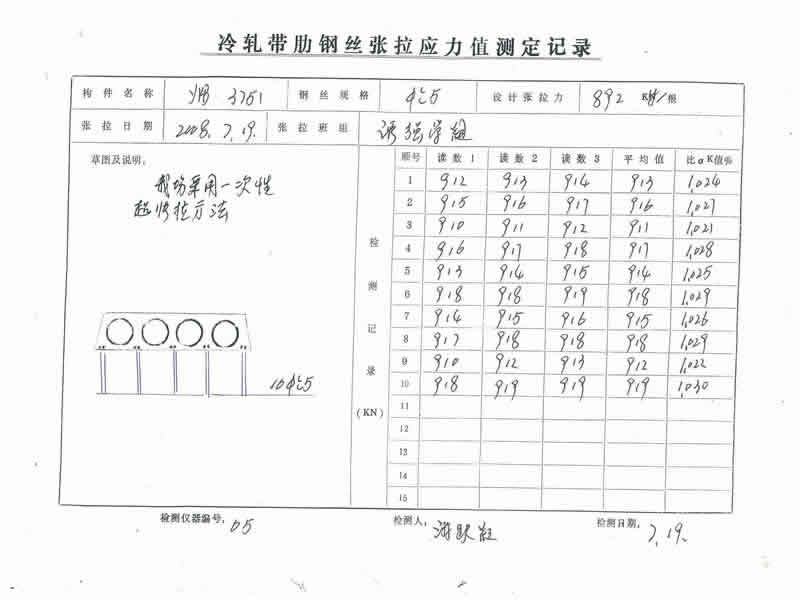 冷轧带肋钢丝张拉应力值测定记录
构件名称 YB 3751 钢丝规格 设计张拉力 892 /根
张拉日期 2008.7.19. 张拉班组
草图及说明: 顺号 读数1 读数2 读数3 平均值 比σK值%
我场采用一次性
超张拉方法
检测记录(KN)
1 912 913 914 913 1.024
2 915 916 917 916 1.027
3 910 911 912 911 1.021
4 916 917 918 917 1.028
5 913 914 915 914 1.025
6 918 918 919 918 1.029
7 914 915 916 915 1.026
8 917 918 918 918 1.029
9 910 912 913 912 1.022
10 918 919 919 919 1.030
11
12
13
14
15
检测仪器编号: 05 检测人: 检测日期: 7.19.